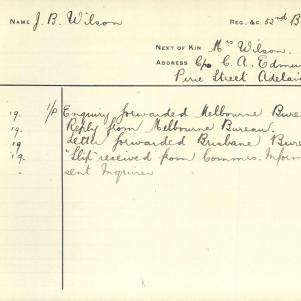 NAME J. B. Wilson REG. &C. 52nd B
NEXT OF KIN Mrs Wilson.
ADDRESS c/o C. A. Edmu
Pirie Street Adelai
19. 1/P Enquiry forwarded Melbourne Bure
19. Reply from Melbourne Bureau.
19 Letter forwarded Brisbane Bure
19. "Slip" received from Commrs. Inform
sent Inquirer